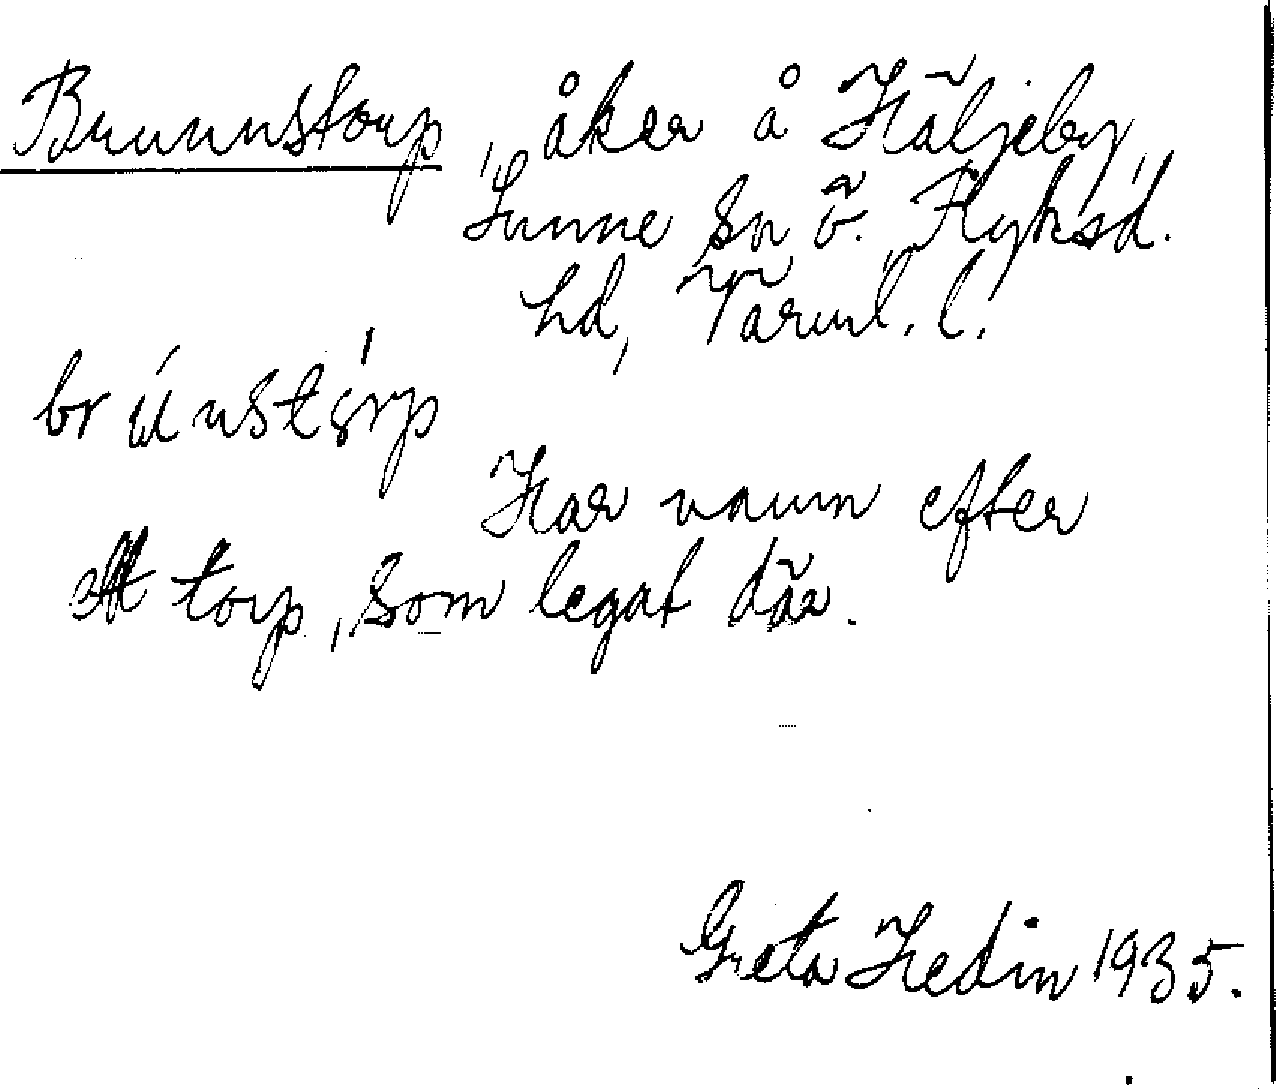 Brunnstorp, åker å Häljeby,
Sunne sn ö. Fryksd.
hd, Värml. l.
Har namn efter
ett torp, som legat där.
Greta Hedin 1935.